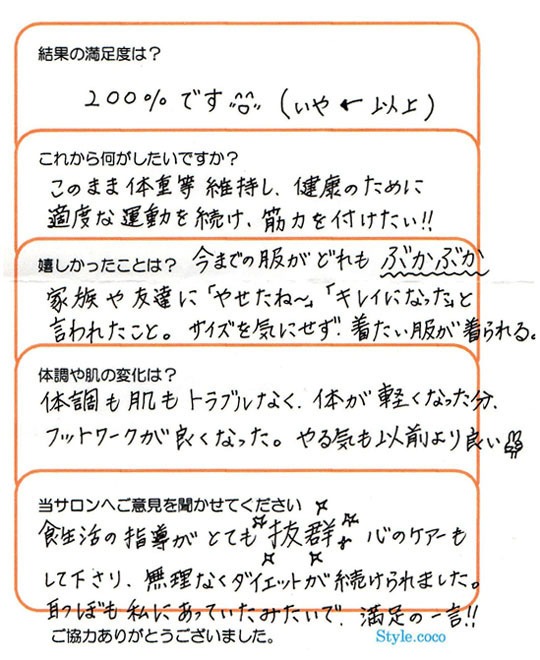 結果の満足度は？
200%です(いや←以上)
これから何がしたいですか？
このまま体重等維持し、健康のために
適度な運動を続け、筋力を付けたい!!
嬉しかったことは？ 今までの服がどれもぶかぶか
家族や友達に「やせたね～」「キレイになった」と
言われたこと。サイズを気にせず、着たい服が着られる。
体調や肌の変化は？
体調も肌もトラブルなく、体が軽くなった分、
フットワークが良くなった。やる気も以前より良い
当サロンへご意見を聞かせてください
食生活の指導がとても抜群。心のケアーも
して下さり、無理なくダイエットが続けられました。
耳つぼも私にあっていたみたいで、満足の一言!!
ご協力ありがとうございました。 Style.coco